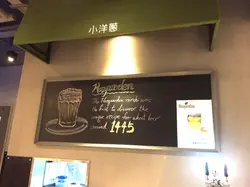 小洋蔥
Hoegaarden
The Hoegaarden monks were
the first to discover the
unique recipe for wheat beer
around 1445